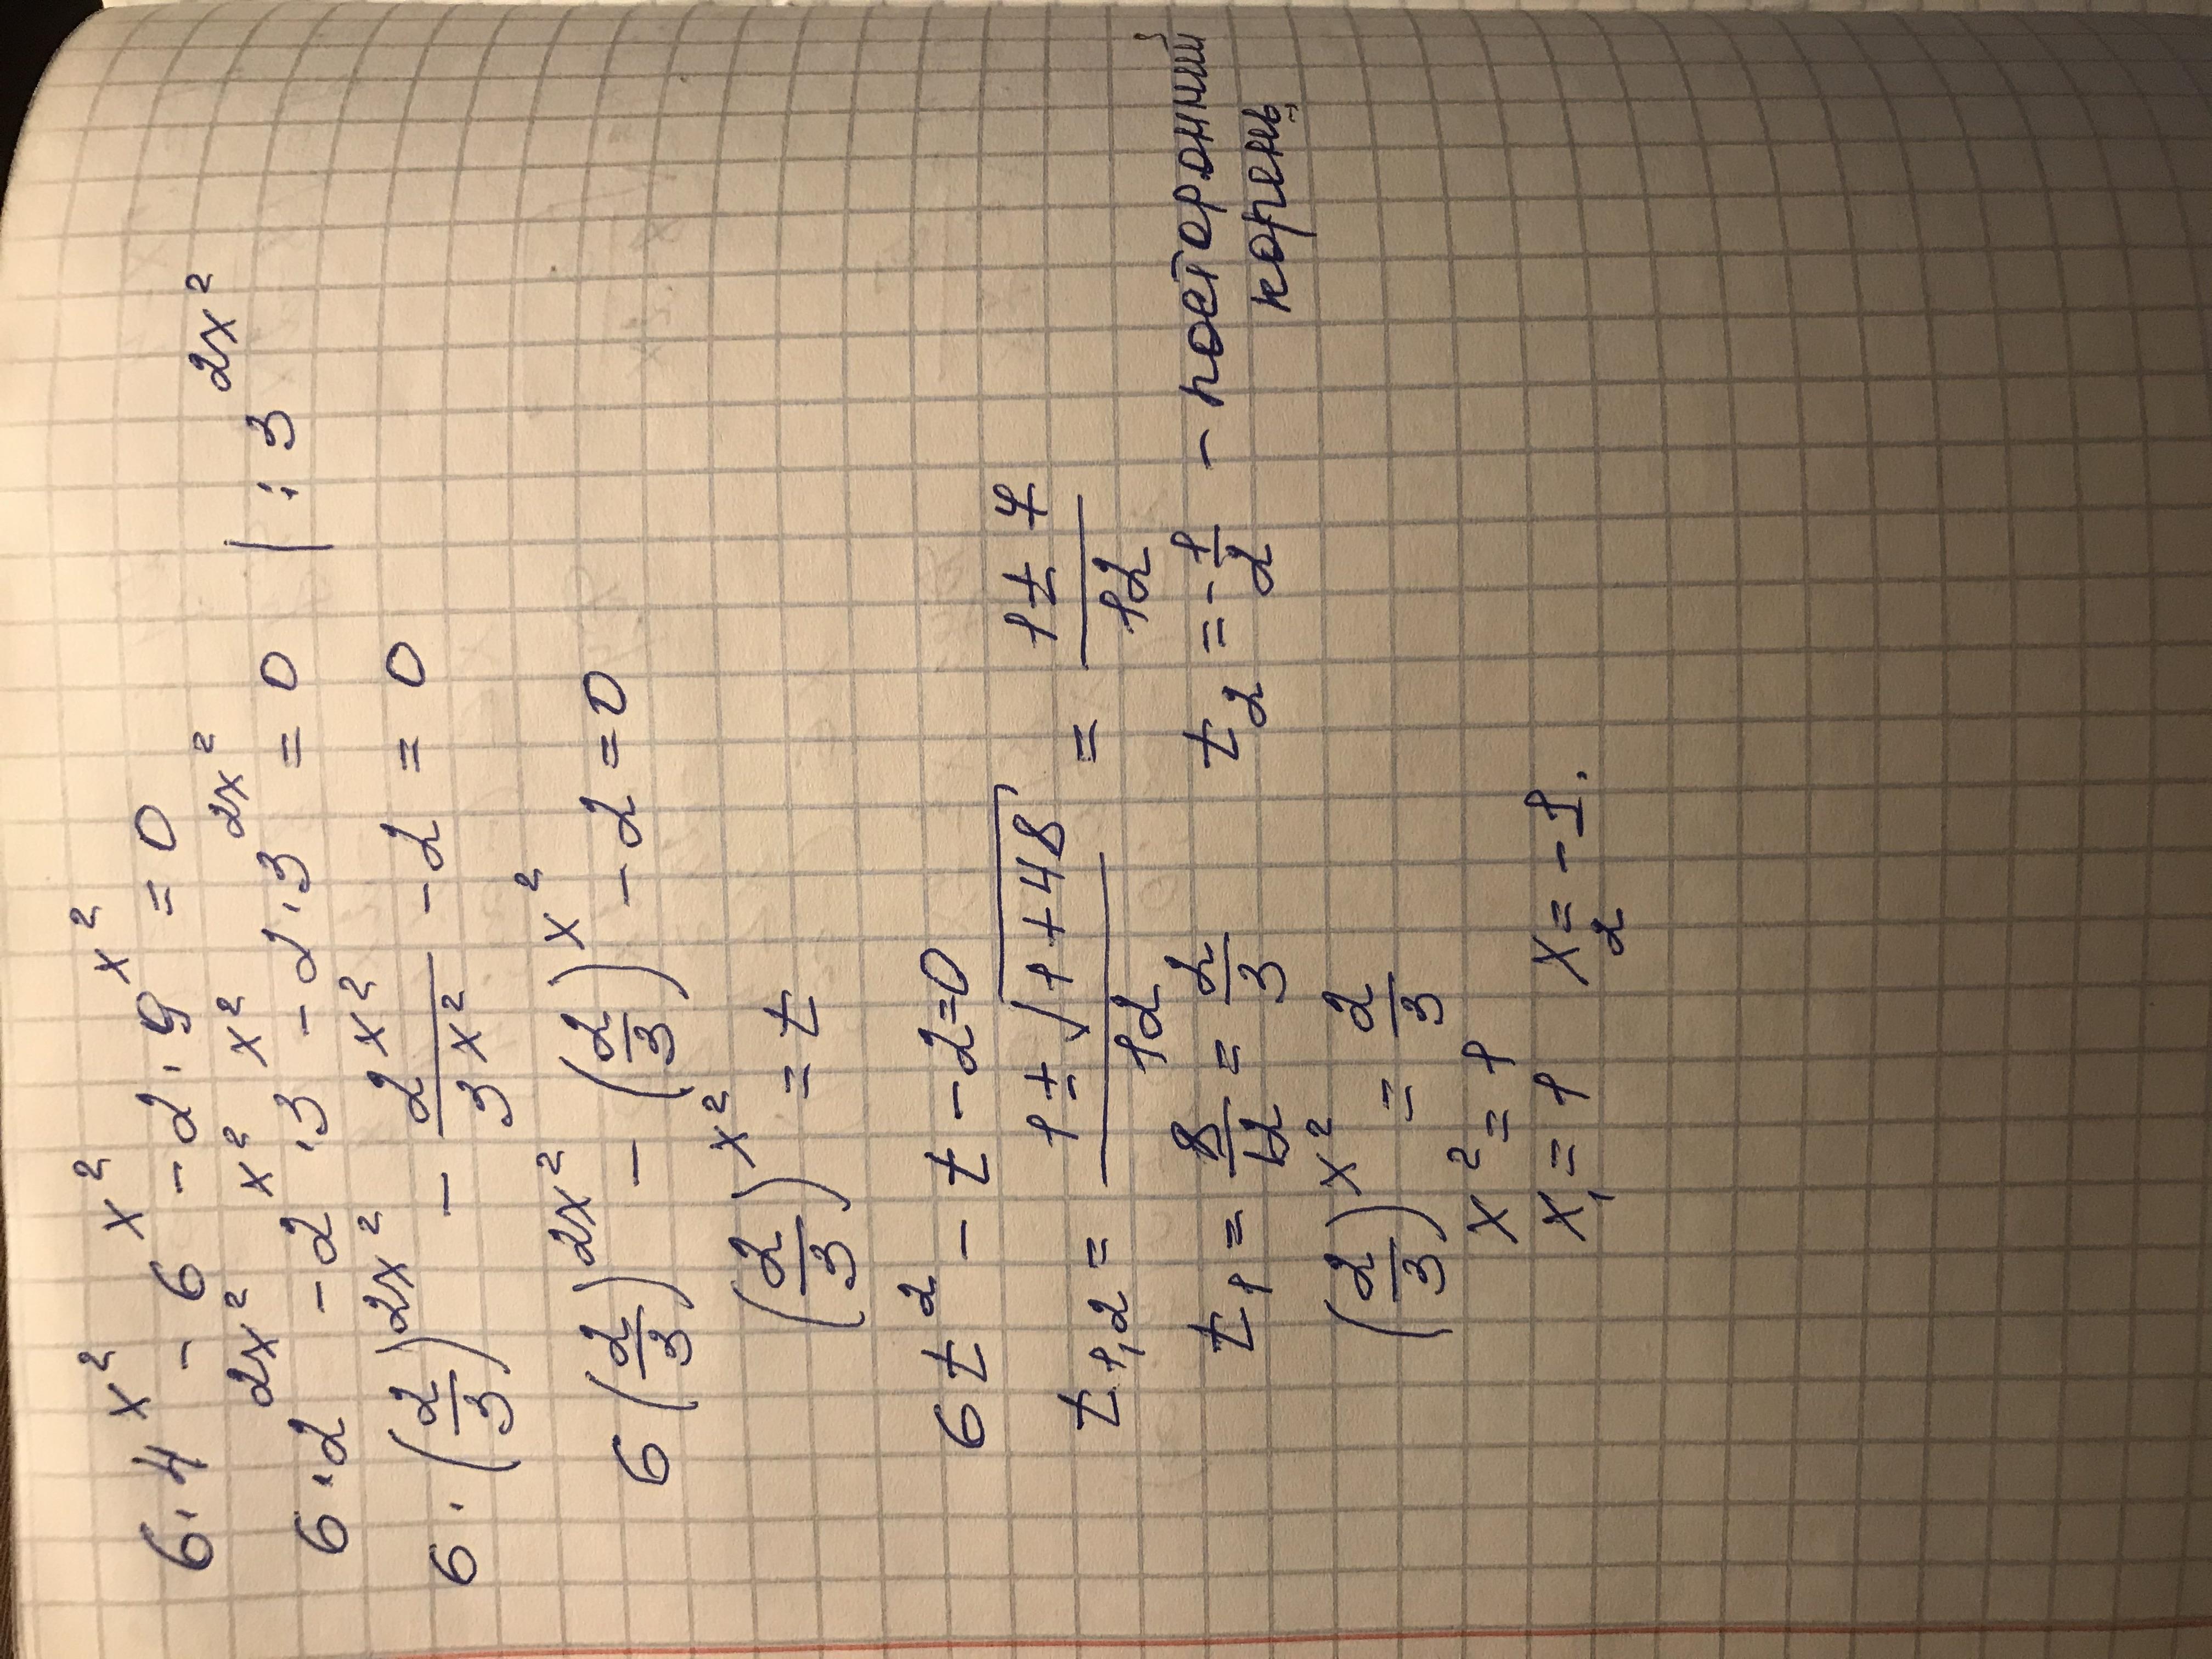 6·4^{x^2} - 6^{x^2} - 2·9^{x^2} = 0
6·2^{2x^2} - 2^{x^2}·3^{x^2} - 2·3^{2x^2} = 0 | : 3^{2x^2}
6·(2/3)^{2x^2} - 2^{x^2}/3^{x^2} - 2 = 0
6(2/3)^{2x^2} - (2/3)^{x^2} - 2 = 0
(2/3)^{x^2} = t
6t^2 - t - 2 = 0
t_{1,2} = (1 ± √(1+48))/12 = (1 ± 7)/12
t_1 = 8/12 = 2/3 t_2 = -1/2 - посторонний
корень
(2/3)^{x^2} = 2/3
x^2 = 1
x_1 = 1 x_2 = -1.